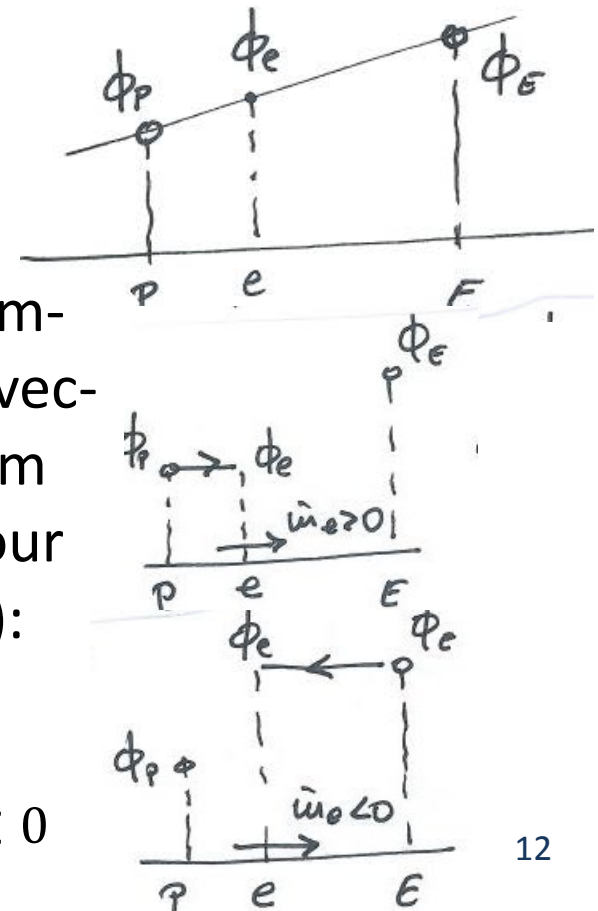 ϕe
ϕP
ϕE
P e E
m-
vec-
m
our
):
ϕE
ϕP ϕe
ṁe≥0
P e E
ϕe ϕe
ϕP
ṁe<0
0
P e E
12